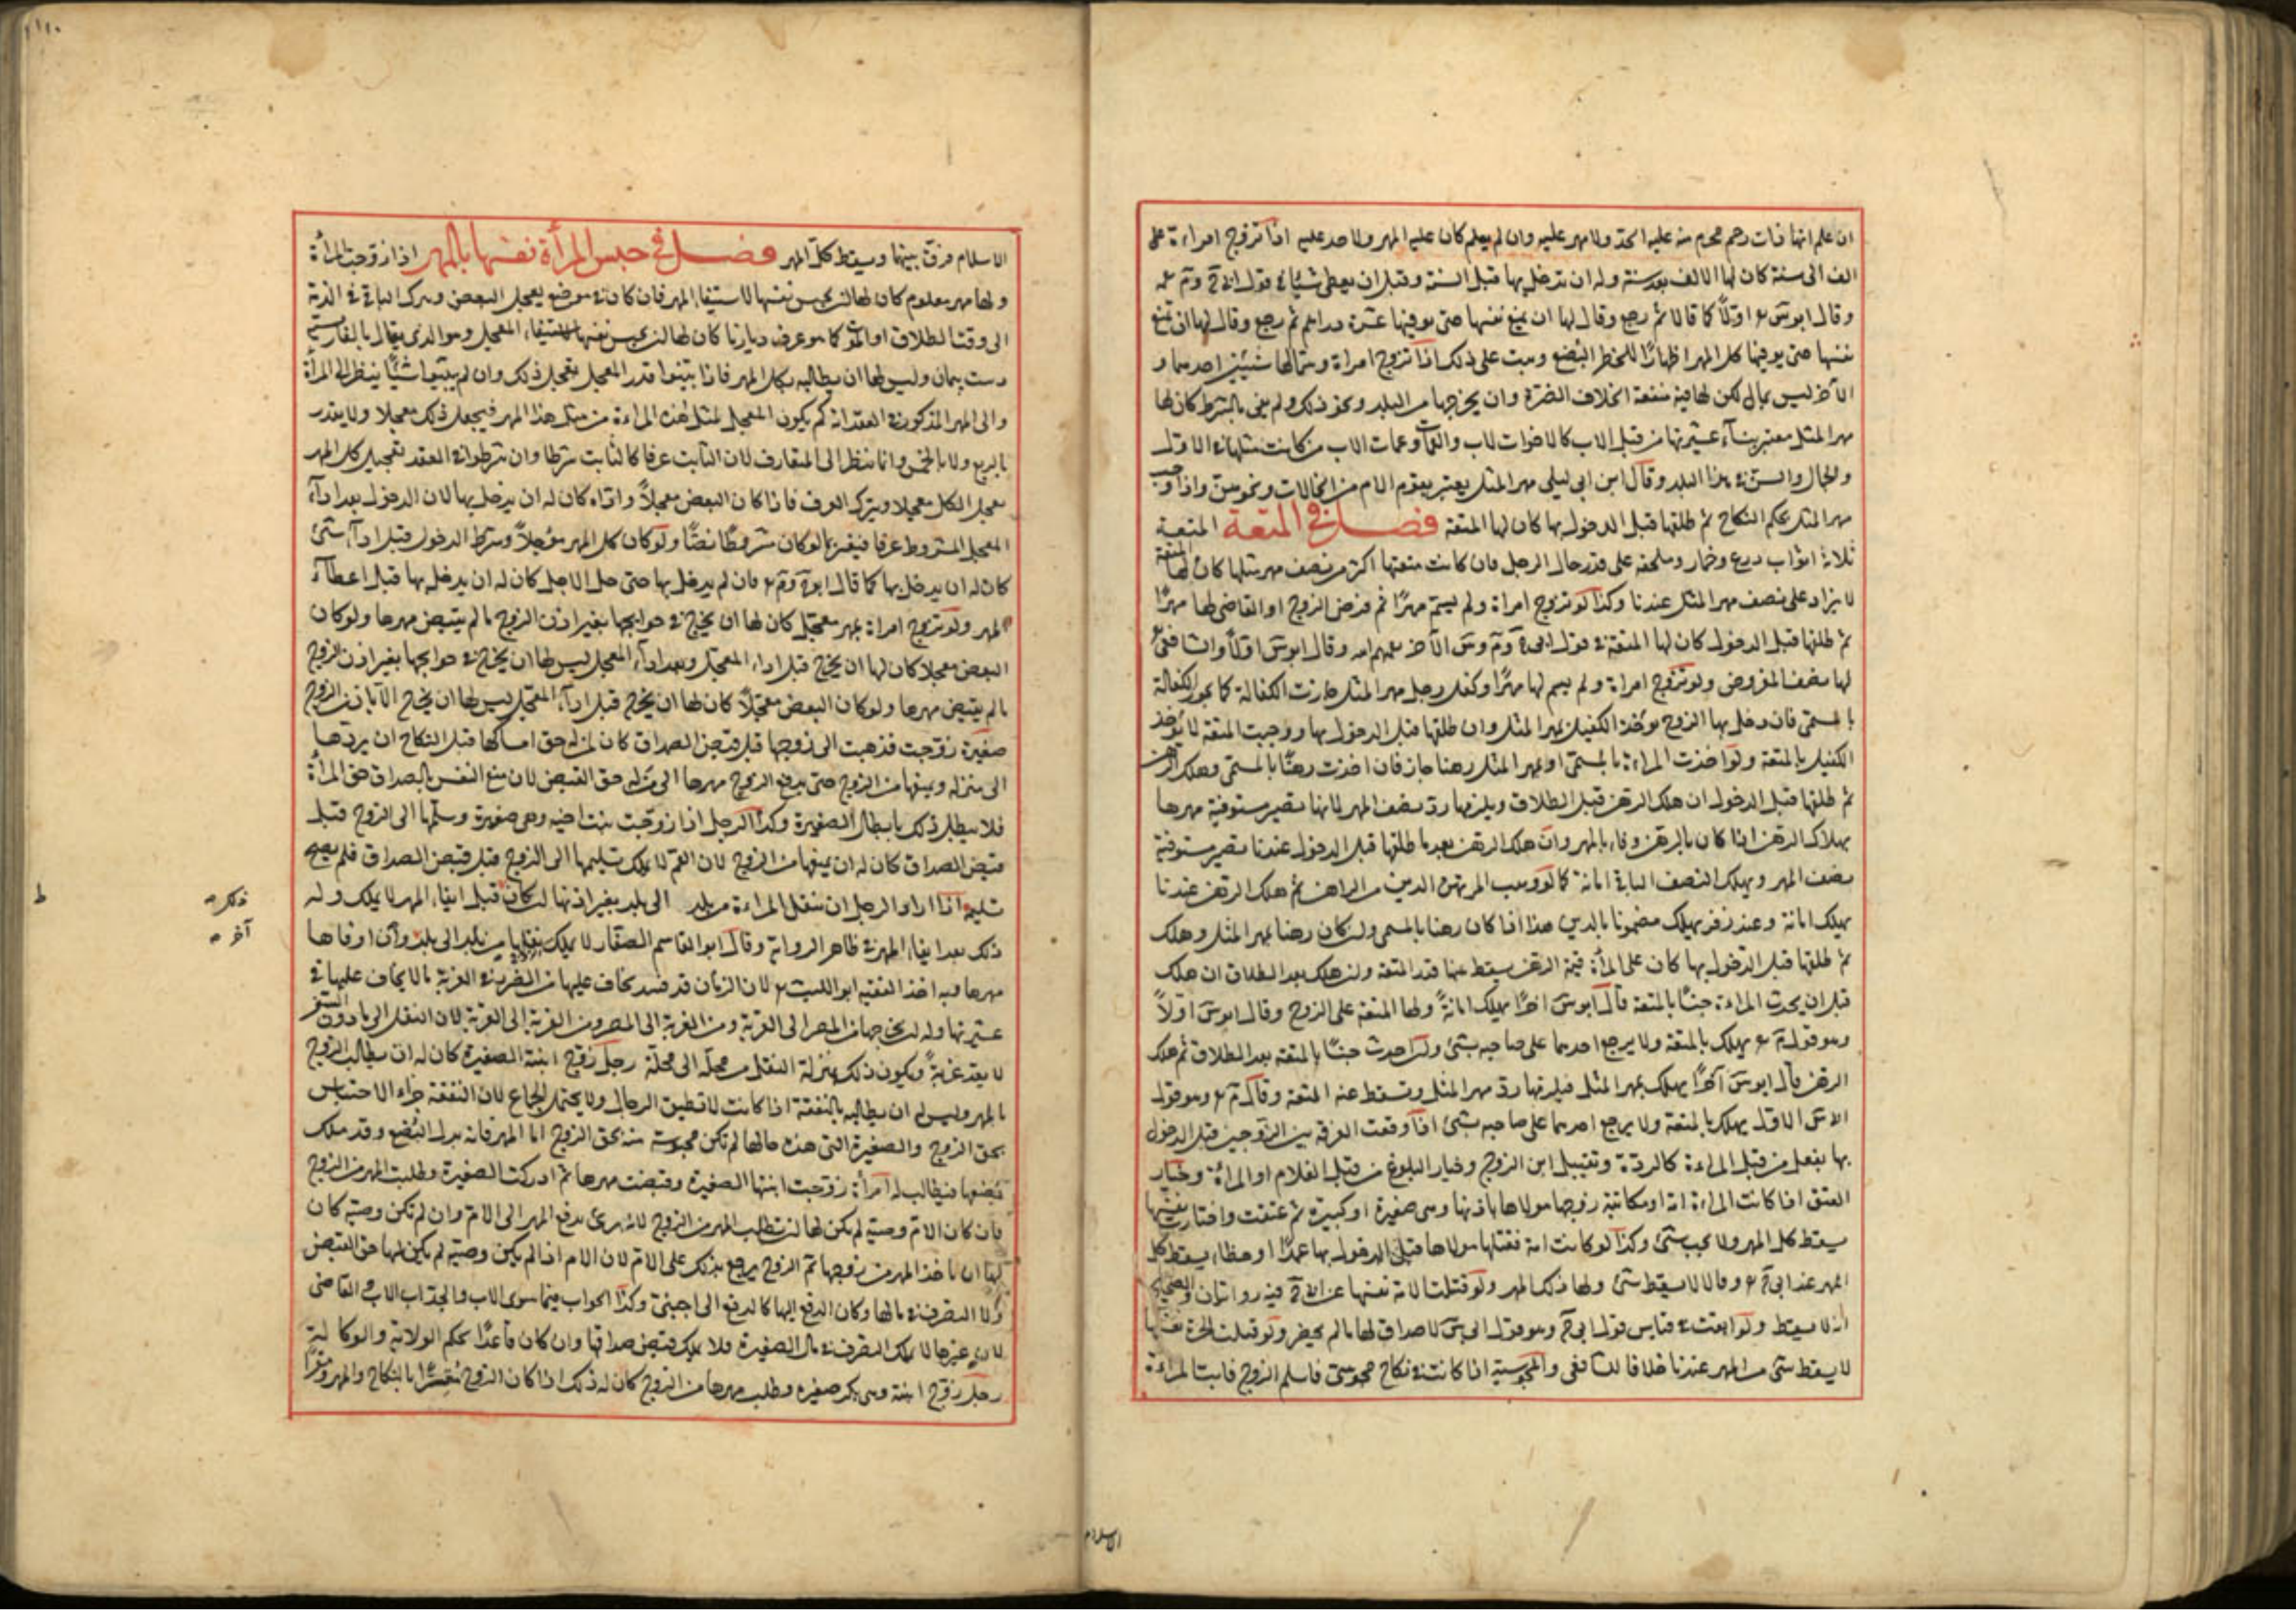 ان علم انها ذات رحم محرم منه عليه الحد ولا مهر عليه وان لم يعلم كان عليه المهر ولا حد عليه اذا تزوج امراءة على
الف الى سنة كان لها الالف بعد سنة وله ان يدخل بها قبل السنة وقبل ان يعطى شيئا في قول
اولا كما قالا ثم رجع وقال لها ان تمنع نفسها حتى يوفيها عشرة دراهم ثم رجع وقال لها ان تمنع
نفسها حتى يوفيها كل المهر اظهارا للخطر البضع وثبت على ذلك اذا تزوج امراة وسمى لها شيئين احدهما و
الآخر ليس بمال لكن لها فيه منفعة وان يخرجها من البلد ونحو ذلك ولم يفي بالشرط كان لها
مهر المثل معتبر بنساء عشيرتها من قبل الاب كالاخوات لاب والعمات وعمات الاب
والجمال والسن في هذا البلد وقال ابن ابى ليلى مهر المثل يعتبر بقوم الام من الخالات ونحوهن واذا وجب
مهر المثل بحكم النكاح ثم طلقها قبل الدخول بها كان لها المتعة فصل في المتعة المتعة
ثلاثة اثواب درع وخمار وملحفة على قدر حال الرجل فان كانت متعتها اكثر من نصف مهر مثلها كان لها المتعة
لا يزاد على نصف مهر المثل عندنا وكذا لو تزوج امراة ولم يسم مهرا ثم فرض الزوج او القاضى لها مهرا
ثم طلقها قبل الدخول كان لها المتعة في قول وقال ابو اولا والشافعى
لها نصف المفروض ولو تزوج امراة ولم يسم لها مهرا وكفل رجل مهر المثل جازت الكفالة كما تجوز الكفالة
بالمسمى فان دخل بها الزوج يؤخذ الكفيل بمهر المثل وان طلقها قبل الدخول بها ووجبت المتعة لا يؤخذ
الكفيل بالمتعة ولو اخذت المراءة بالمسمى او بمهر المثل رهنا جاز فان اخذت رهنا بالمسمى وهلك الرهن
ثم طلقها قبل الدخول ان هلك الرهن قبل الطلاق ويلزمها رد نصف المهر لانها تصير مستوفية مهرها
بهلاك الرهن اذا كان بالرهن وفاء بالمهر وان هلك الرهن بعد ما طلقها قبل الدخول عندنا تصير مستوفية
نصف المهر ويهلك النصف الباقى امانة كما لو وهب المرتهن الدين من الراهن ثم هلك الرهن عندنا
يهلك امانة وعند زفر يهلك مضمونا بالدين هذا اذا كان رهنا بالمسمى وان كان رهنا بمهر المثل وهلك
ثم طلقها قبل الدخول بها كان على المرأة قيمة الرهن يسقط عنها قدر المتعة وان هلك بعد الطلاق ان هلك
قبل ان يحدث المراءة حبسا بالمتعة قال ابو اخرا يهلك امانة ولها المتعة على الزوج وقال ابو اولا
وهو قول يهلك بالمتعة ولا يرجع احدهما على صاحبه بشئ وان احدث حبسا بالمتعة بعد الطلاق ثم هلك
الرهن قال ابو آخرا يهلك بمهر المثل فيلزمها رد مهر المثل ويسقط عنه المتعة وقال وهو قول
الاول يهلك بالمتعة ولا يرجع احدهما على صاحبه بشئ اذا وقعت الفرقة بين الزوجين قبل الدخول
بها بفعل من قبل المراءة كالردة وتقبيل ابن الزوج وخيار البلوغ من قبل الغلام او المرأة وخيار
العتق اذا كانت المراءة امة او مكاتبة زوجها مولاها باذنها وهى صغيرة او كبيرة ثم عتقت واختارت نفسها
يسقط كل المهر ولا يجب شئ وكذا لو كانت امة فقتلها مولاها قبل الدخول بها عمدا او خطاء يسقط كل
المهر عند ابى وقالا لا يسقط شئ ولها ذلك المهر ولو قتلت الامة نفسها عن فيه روايتان والصحيح
انه لا يسقط ولو قياس قول ابى وهو قول ابى لا صداق لها ما لم يحضر ولو قتلت الحرة نفسها
لا يسقط شئ من المهر عندنا خلافا للشافعى والمجوسية اذا كانت في نكاح مجوسى فاسلم الزوج فابت المراءة
الاسلام
الاسلام فرق بينهما ويسقط كل المهر فصل في حبس المرأة نفسها بالمهر اذا زوجت المرأة
ولها مهر معلوم كان لها ان تحبس نفسها لاستيفاء المهر فان كان في موضع يعجل البعض ويترك الباقى في الذمة
الى وقت الطلاق او الموت كما هو عرف ديارنا كان لها ان تحبس نفسها لاستيفاء المعجل وهو الذى يقال بالفارسية
دست پيمان وليس لها ان يطالبه بكل المهر فاذا بينوا قدر المعجل يعجل ذلك وان لم يبينوا شيئا ينظر الى المرأة
والى المهر المذكور في العقد انه كم يكون المعجل لمثل هذه المراءة من مثل هذا المهر فيجعل ذلك معجلا ولا يقدر
بالربع ولا بالخمس وانما ينظر الى المتعارف لان الثابت عرفا كالثابت شرطا وان شرطوا في العقد تعجيل كل المهر
يجعل الكل معجلا ويترك العرف فاذا كان البعض معجلا واداه كان له ان يدخل بها لان الدخول بعد اداء
المعجل المشروط عرفا فيعتبر بما لو كان مشروطا نصا ولو كان كل المهر مؤجلا وشرط الدخول قبل اداء شئ
كان له ان يدخل بها كما قال ابو فان لم يدخل بها حتى حل الاجل كان له ان يدخل بها قبل اعطاء
المهر ولو تزوج امراة بمهر معجل كان لها ان يخرج في حوايجها بغير اذن الزوج ما لم يقبض مهرها ولو كان
البعض معجلا كان لها ان يخرج قبل اداء المعجل وبعد اداء المعجل ليس لها ان يخرج في حوايجها بغير اذن الزوج
ما لم يقبض مهرها ولو كان البعض معجلا كان لها ان يخرج قبل اداء المعجل ليس لها ان يخرج الا باذن الزوج
صغيرة زوجت فذهبت الى زوجها قبل قبض الصداق كان لمن له حق امساكها قبل النكاح ان يردها
الى منزله ويمنعها من الزوج حتى يدفع الزوج مهرها الى من له حق القبض لان منع النفس بالصداق حق المرأة
فلا يبطل ذلك بابطال الصغيرة وكذا الرجل اذا زوجت بنت اخيه وهى صغيرة وسلمها الى الزوج قبل
قبض الصداق كان له ان يمنعها من الزوج لان العم لا يملك تسليمها الى الزوج قبل قبض الصداق فلم يصح
تسليمه اذا اراد الرجل ان ينقل المراءة من بلد الى بلد بغير اذنها ان كان قبل ايفاء المهر لا يملك وله
ذلك بعد ايفاء المهر في ظاهر الرواية وقال ابو القاسم الصفار لا يملك نقلها من بلد الى بلد وان اوفاها
مهرها وبه اخذ الفقيه ابو الليث لان الزمان قد فسد يخاف عليها من الضرر في الغربة ما لا يخاف عليها في
عشيرتها وله ان يخرجها من المصر الى القرية ومن القرية الى المصر ومن القرية الى القرية لان النقل الى ما دون السفر
لا يعد غربة ويكون ذلك بمنزلة النقل من محلة الى محلة رجل زوج ابنته الصغيرة كان له ان يطالب الزوج
بالمهر وليس له ان يطالبه بالنفقة اذا كانت لا تطيق الرجال ولا يحتمل الجماع لان النفقة جزاء الاحتباس
بحق الزوج والصغيرة التى هذه حالها لم تكن محبوسة منه بحق الزوج اما المهر فانه بدل البضع وقد ملك
بضعها فيطالب له امرأة زوجت ابنتها الصغيرة وقبضت مهرها ثم ادركت الصغيرة وطلبت المهر من الزوج
فان كان الام وصية لم يكن لها ان تطلب المهر من الزوج لانه برئ بدفع المهر الى الام وان لم تكن وصية كان
لها ان تاخذ المهر من زوجها ثم الزوج يرجع بذلك على الام لان الام اذا لم يكن وصية لم يكن لها حق القبض
ولا التصرف في مالها وكان الدفع اليها كالدفع الى اجنبى وكذا الجواب فيما سوى الاب والجد اب الاب والقاضى
لان غيرها لا يملك التصرف في مال الصغيرة فلا يملك قبض صداقها وان كان عاقدا بحكم الولاية والوكالة
رجل زوج ابنته وهى بكر صغيرة وطلب مهرها من الزوج كان له ذلك اذا كان الزوج مقرا بالنكاح والمهر